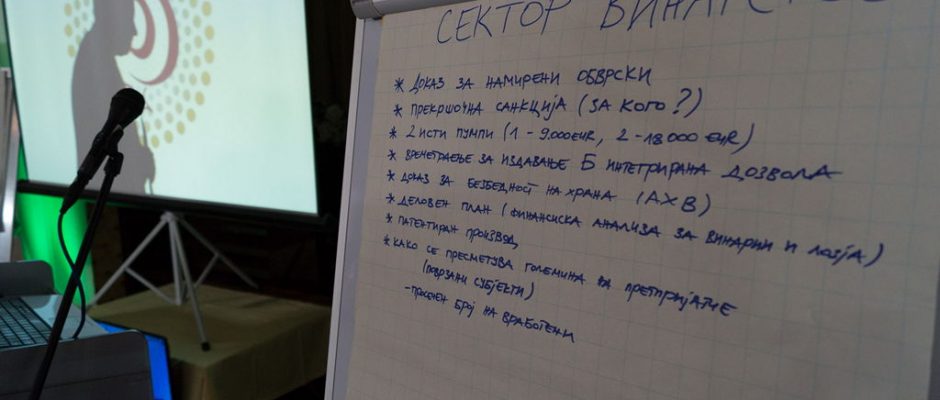 СЕКТОР ВИНАРСТВО
* ДОКАЗ ЗА НАМИРЕНИ ОБВРСКИ
* ПРЕКРШОЧНА САНКЦИЈА (ЗА КОГО?)
* 2 ИСТИ ПУМПИ (1 - 9.000 EUR, 2 - 18 000 EUR)
* ВРЕМЕТРАЕЊЕ ЗА ИЗДАВАЊЕ Б ИНТЕГРИРАНА ДОЗВОЛА
* ДОКАЗ ЗА БЕЗБЕДНОСТ НА ХРАНА (АХВ)
* ДЕЛОВЕН ПЛАН (ФИНАНСИСКА АНАЛИЗА ЗА ВИНАРИИ И ЛОЗЈА)
* ПАТЕНТИРАН ПРОИЗВОД
* КАКО СЕ ПРЕСМЕТУВА ГОЛЕМИНА НА ПРЕТПРИЈАТИЕ
(ПОВРЗАНИ СУБЈЕКТИ)
- ПРОСЕЧЕН БРОЈ НА ВРАБОТЕНИ